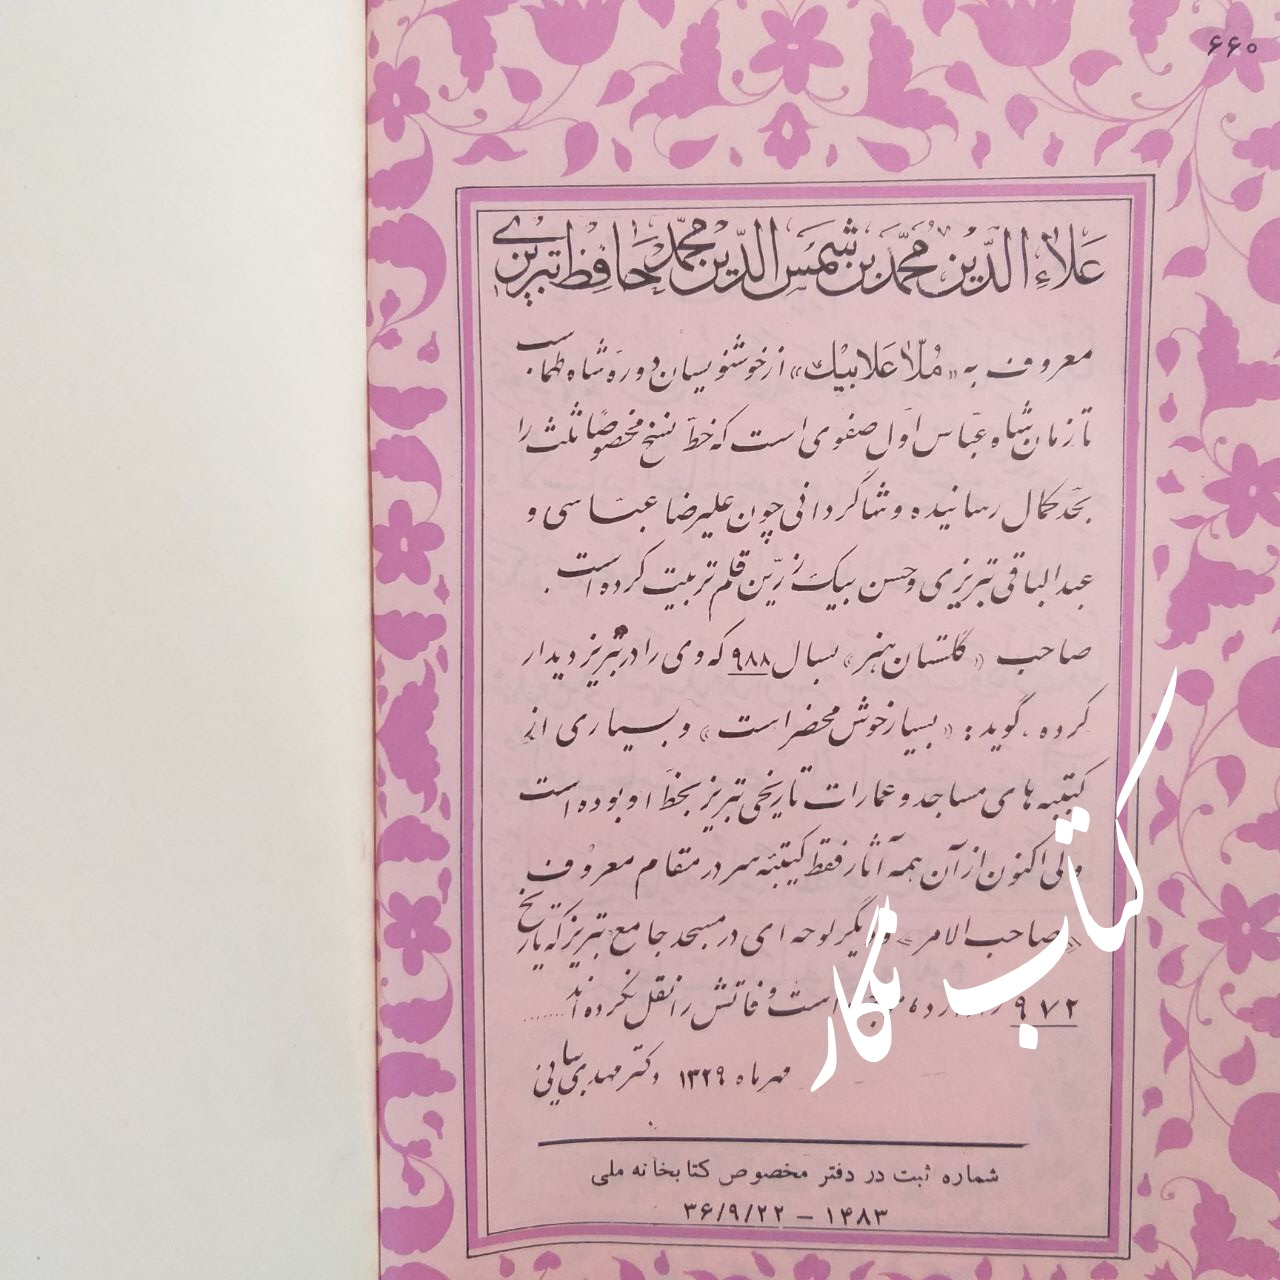 ۶۶۰
علاء الدّین محمّد بن شمس الدّین محمّد حافظ تبریزی
معروف به «ملّا علا بیک» از خوشنویسان دورهٔ شاه طهماسب
تا زمان شاه عبّاس اوّل صفوی است که خطّ نسخ مخصوصاً ثلث را
بحدّ کمال رسانیده و شاگردانی چون علیرضا عبّاسی و
عبدالباقی تبریزی و حسن بیک زرّین قلم تربیت کرده است.
صاحب «گلستان هنر» بسال ۹۸۸ که وی را در تبریز دیدار
کرده، گوید: «بسیار خوش محضر است» و بسیاری از
کتیبه های مساجد و عمارات تاریخی تبریز بخطّ او بوده است
ولی اکنون از آن همه آثار فقط کتیبهٔ سر در مقام معروف
«صاحب الامر» و دیگر لوحه ای در مسجد جامع تبریز که تاریخ
۹۷۲ را دارد، است وفاتش را نقل نکرده اند.......
مهرماه ۱۳۲۹ دکتر مهدی بیانی
شماره ثبت در دفتر مخصوص کتابخانه ملی
۱۴۸۳ – ۳۶/۹/۲۲
کتاب نگار